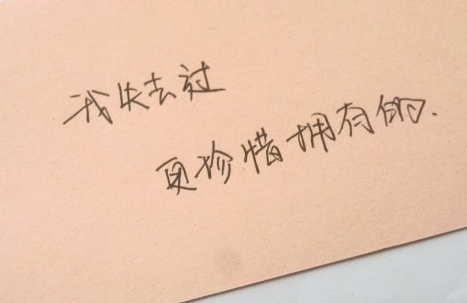 我失去过
更珍惜拥有的.